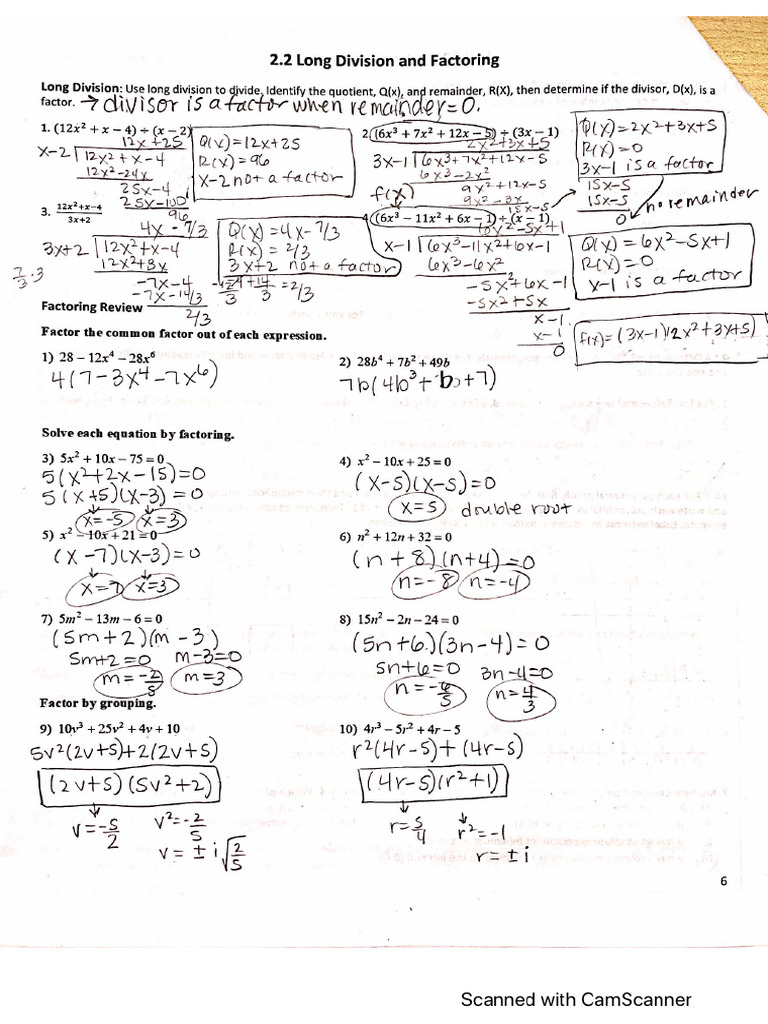 2.2 Long Division and Factoring
Long Division: Use long division to divide, Identify the quotient, Q(x), and remainder, R(X), then determine if the divisor, D(x), is a
factor. → divisor is a factor when remainder=0.
1. (12x² + x – 4) ÷ (x – 2)
12x+25
x-2 | 12x²+x-4
12x²-24x
25x-4
25x-100
96
Q(x)=12x+25
R(x)=96
x-2 not a factor
2. (6x³ + 7x² + 12x – 5) ÷ (3x – 1)
2x²+3x+5
3x-1 | 6x³+7x²+12x-5
6x³-2x²
f(x)
9x²+12x-5
9x²-3x
15x-5
Q(x)=2x²+3x+5
R(x)=0
3x-1 is a factor
15x-5
15x-5
0 no remainder
3. 12x²+x–4 / 3x+2
4x-7/3
3x+2 | 12x²+x-4
12x²+8x
-7x-4
-7x-14/3
2/3
7/3·3
Q(x)=4x-7/3
R(x)=2/3
3x+2 not a factor
-12/3+14/3=2/3
4. (6x³ – 11x² + 6x – 1) ÷ (x – 1)
6x²-5x+1
x-1 | 6x³-11x²+6x-1
6x³-6x²
-5x²+6x-1
-5x²+5x
x-1
x-1
0
Q(x)=6x²-5x+1
R(x)=0
x-1 is a factor
f(x)=(3x-1)(2x²+3x+5)
Factoring Review
Factor the common factor out of each expression.
1) 28 – 12x⁴ – 28x⁶
4(7-3x⁴-7x⁶)
2) 28b⁴ + 7b² + 49b
7b(4b³+b+7)
Solve each equation by factoring.
3) 5x² + 10x – 75 = 0
5(x²+2x-15)=0
5(x+5)(x-3)=0
x=-5 x=3
4) x² – 10x + 25 = 0
(x-5)(x-5)=0
x=5 double root
5) x² – 10x + 21 = 0
(x-7)(x-3)=0
x=7 x=3
6) n² + 12n + 32 = 0
(n+8)(n+4)=0
n=-8 n=-4
7) 5m² – 13m – 6 = 0
(5m+2)(m-3)
5m+2=0 m-3=0
m=-2/5 m=3
8) 15n² – 2n – 24 = 0
(5n+6)(3n-4)=0
5n+6=0 3n-4=0
n=-6/5 n=4/3
Factor by grouping.
9) 10v³ + 25v² + 4v + 10
5v²(2v+5)+2(2v+5)
(2v+5)(5v²+2)
v=-5/2 v²=-2/5
v=±i√2/5
10) 4r³ – 5r² + 4r – 5
r²(4r-5)+(4r-5)
(4r-5)(r²+1)
r=5/4 r²=-1
r=±i
6
Scanned with CamScanner